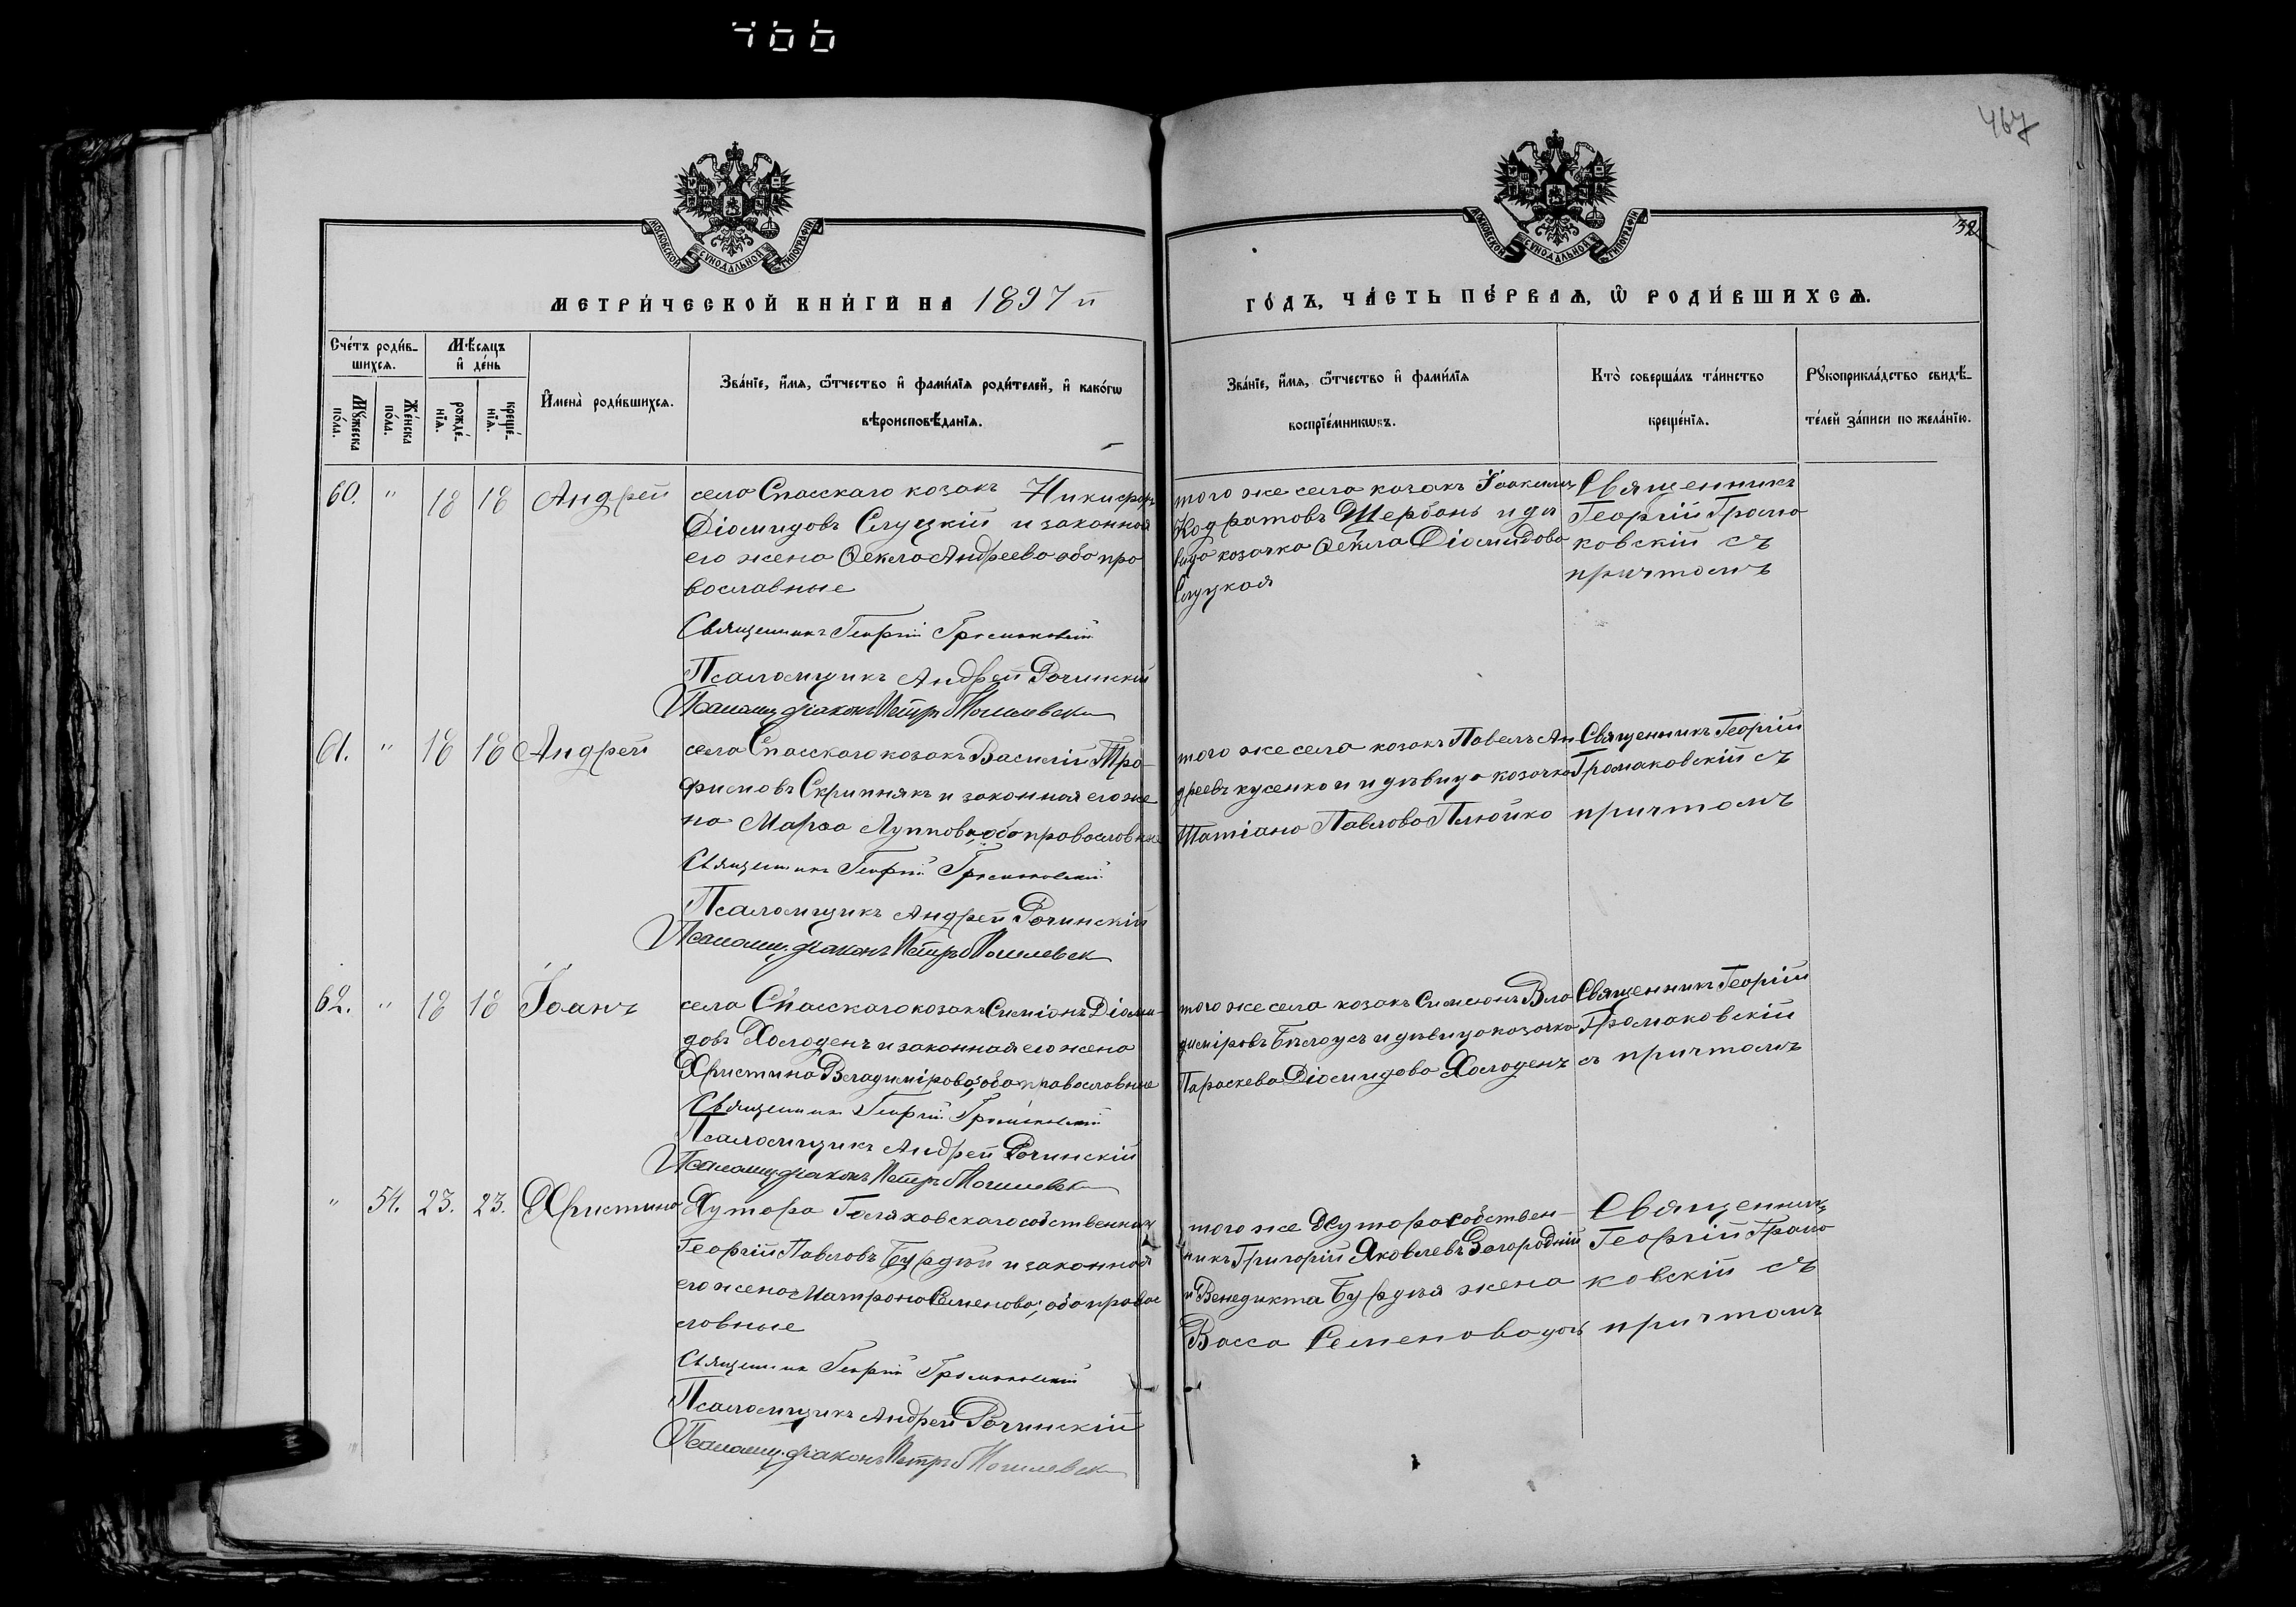 466
467
32
МОСКОВСКОЙ СѴНОДАЛЬНОЙ ТИПОГРАФІИ
МОСКОВСКОЙ СѴНОДАЛЬНОЙ ТИПОГРАФІИ
МЕТРИ́ЧЕСКОЙ КНИ́ГИ НА 1897 й
ГО́ДЪ, ЧА́СТЬ ПЕ́РВАѦ, Ѡ҆ РОДИ́ВШИХСѦ.
Сче́тъ роди́в-
шихсѧ.
Мꙋ́жеска по́ла.
Же́нска по́ла.
Мѣ́сѧцъ и҆ де́нь
рожде́-
нїѧ.
креще́-
нїѧ.
И҆мена̀ роди́вшихсѧ.
Зва́нїе, и҆́мѧ, ѻ҆́тчество и҆ фами́лїѧ роди́телей, и҆ како́гѡ
вѣроисповѣ́данїѧ.
Зва́нїе, и҆́мѧ, ѻ҆́тчество и҆ фами́лїѧ
воспрїе́мникѡвъ.
Кто̀ соверша́лъ та́инство
креще́нїѧ.
Рꙋкоприкла́дство свидѣ́-
телей за́писи по жела́нїю.
60. " 18 18 Андрей
села Спасскаго козакъ Никифоръ
Діомидовъ Слуцкій и законная
его жена Ѳекла Андреева оба пра
вославные
Священникъ Георгій Громаковскій
Псаломщикъ Андрей Рочинскій
Псаломщ. діаконъ Петръ
того же села козакъ Іоакимъ
Кодратовъ Щербань и дѣ
вица козачка Ѳекла Діомидова
Слуцкая
Священникъ
Георгій Грома
ковскій съ
причтомъ
61. " 18 18 Андрей
села Спасскаго козакъ Василій Тро-
фимовъ Скрипнякъ и законная его же
на Марѳа Луппова, оба православные
Священникъ Георгій Громаковскій
Псаломщикъ Андрей Рочинскій
Псаломщ. діаконъ Петръ
того же села козакъ Павелъ Ан
дреевъ кусенко и и дѣвица козачка
Татіана Павлова Плюйко
Священникъ Георгій
Громаковскій съ
причтомъ
62. " 18 18 Іоанъ
села Спасскаго козакъ Симіонъ Діоми-
довъ Холоденъ и законная его жена
Христина Владимірова, оба православные
Священникъ Георгій Громаковскій
Псаломщикъ Андрей Рочинскій
Псаломщ. діаконъ Петръ
того же села козакъ Симеонъ Вла
диміровъ Бѣлоусъ и дѣвица козачка
Параскева Діомидова Холоденъ
Священникъ Георгій
Громаковскій
съ причтомъ
" 54. 23. 23. Христина
Хутора Голяховскаго собственникъ
Георгій Павловъ Бурдѣй и законная
его жена Матрона Семенова; оба правос
лавные
Священникъ Георгій Громаковскій
Псаломщикъ Андрей Рочинскій
Псаломщ. діаконъ Петръ
того же Хутора собствен-
никъ Григорій Яковлевъ Загородній
и Венедикта Бурдѣя жена
Васса Семенова
Священникъ
Георгій Грома
ковскій съ
причтомъ